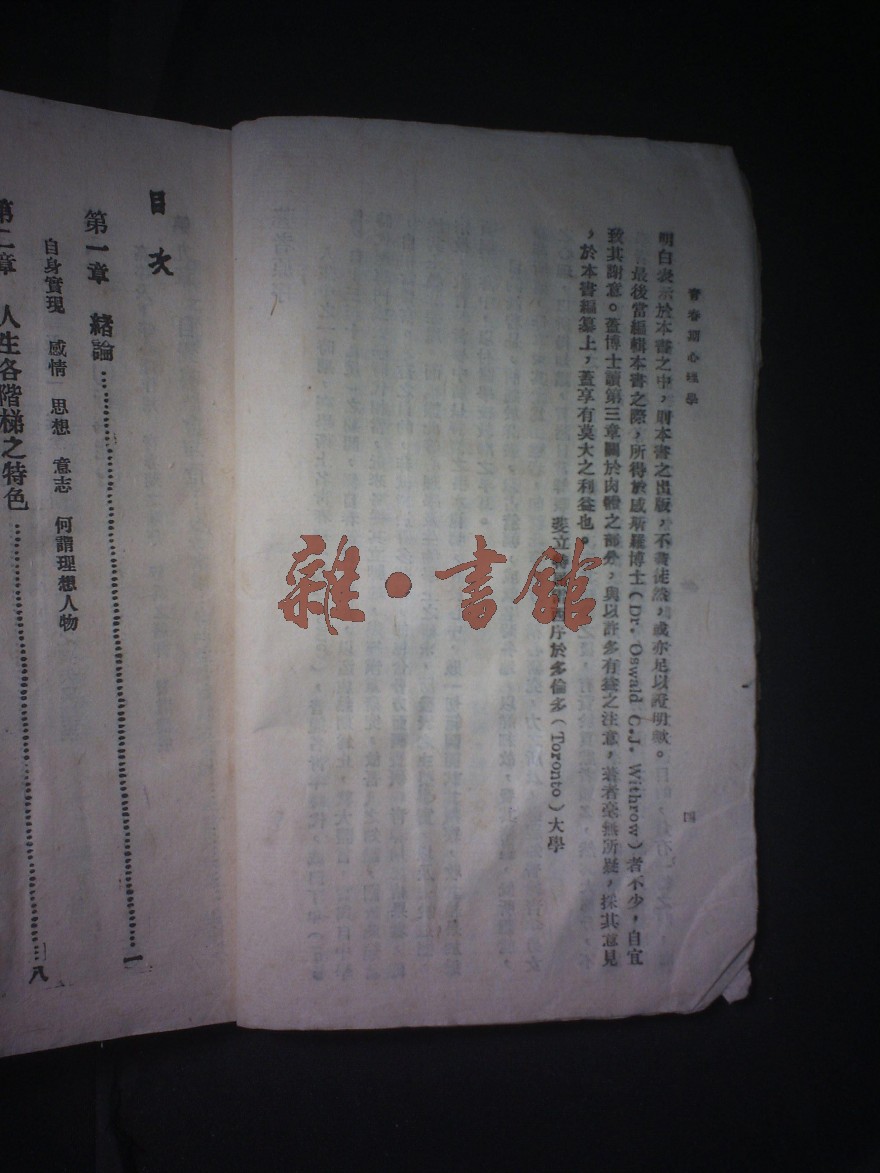 青春期心理學
明白表示於本書之中，則本書之出版，不爲徒然，或亦足以證明歟。
最後當編輯本書之際，所得於威所羅博士(Dr. Oswald C.J. Withrow)者不少，自宜
致其謝意。蓋博士讀第三章關於肉體之部分，與以許多有益之注意，著者毫無所疑，採其意見
，於本書編纂上，蓋享有莫大之利益也。
斐立 序於多倫多(Toronto)大學
四
目次
第一章 緒論 一
自身實現 感情 思想 意志 何謂理想人物
第二章 人生各階梯之特色 八
雜·書館